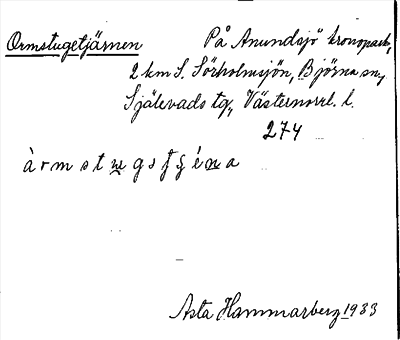 Ormstugetjärnen
På Anundsjö kronopark,
2 km S. Sörholmsjön, Björna sn,
Själevads tg, Västernorrl. l.
274
Asta Hammarberg 1933